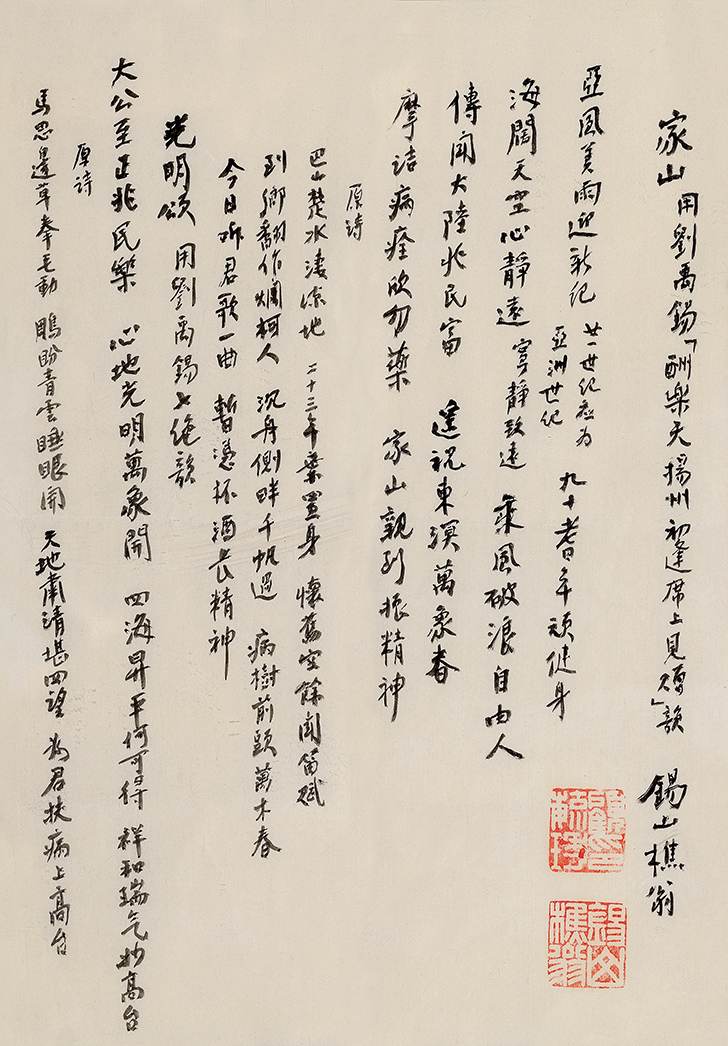 家山 用劉禹錫「酬樂天揚州初逢席上見贈」韻 錫山樵翁
亞風美雨迎新紀 廿一世紀應為亞洲世紀 九十耆年頑健身
海闊天空心靜遠 寧靜致遠 乘風破浪自由人
傳聞大陸兆民富 遙祝東溟萬象春
摩詰病痊欣勿藥 家山親行振精神
原詩
巴山楚水淒涼地 二十三年棄置身 懷舊空餘聞笛賦
到鄉翻作爛柯人 沉舟側畔千帆過 病樹前頭萬木春
今日聽君歌一曲 暫憑杯酒長精神
光明頌 用劉禹錫七絕韻
大公至正兆民樂 心地光明萬象開 四海昇平何可得 祥和瑞气抄高台
原詩
馬思邊草拳毛動 鵰盼青雲睡眼開 天地肅清堪四望 為君扶病上高台
錫山樵翁